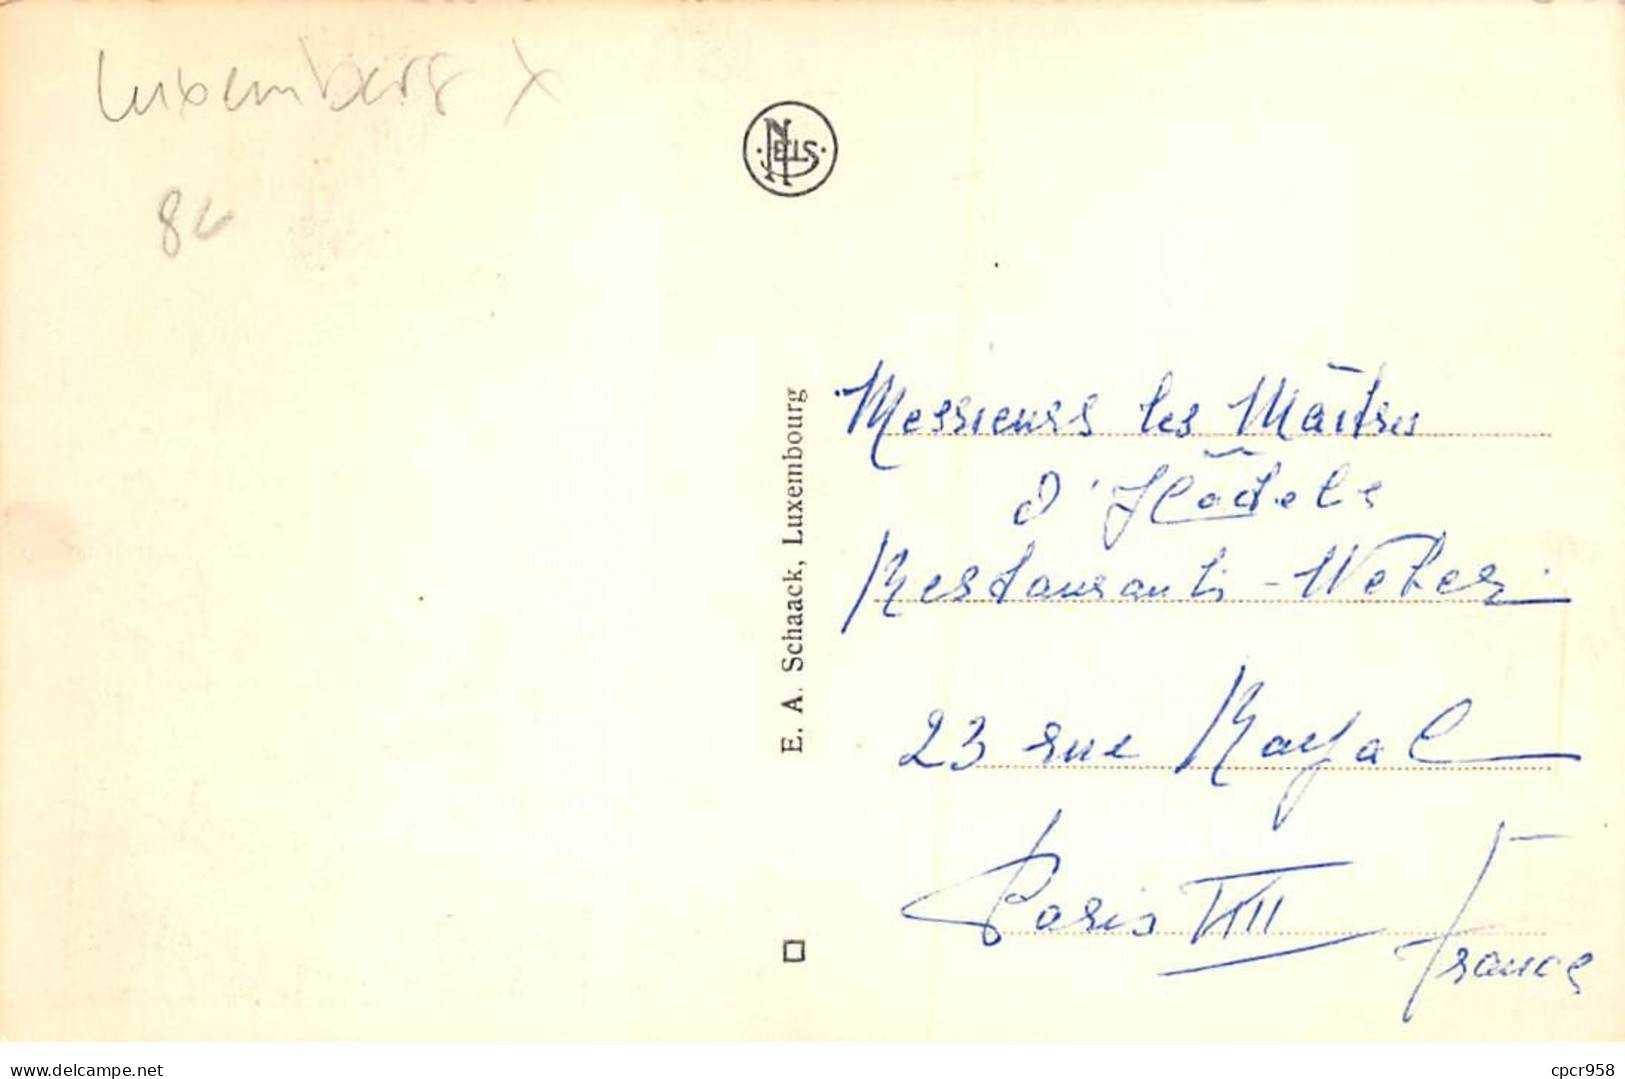 Luxemberg X
8
NELS
E. A. Schaack, Luxembourg
Messieurs les Maîtres
d'Hôtels
Restaurants - Weber
23 rue Royal
Paris VIII
France
www.delcampe.net
cpcr958